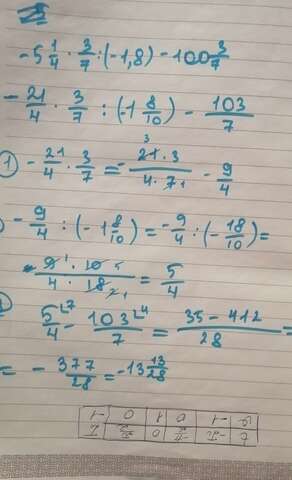 -5 1/4 · 3/7 : (-1,8) - 100 3/7
- 21/4 · 3/7 : (-1 8/10) - 103/7
1) - 21/4 · 3/7 = - 21 · 3 / 4 · 7 - 9/4 3 1
- 9/4 : (- 1 8/10) = - 9/4 : (- 18/10) =
= 9 · 10 / 4 · 18 = 5/4 1 5 2 1
5/4 - 103/7 = 35 - 412 / 28 = 7 4
= - 377/28 = -13 13/28